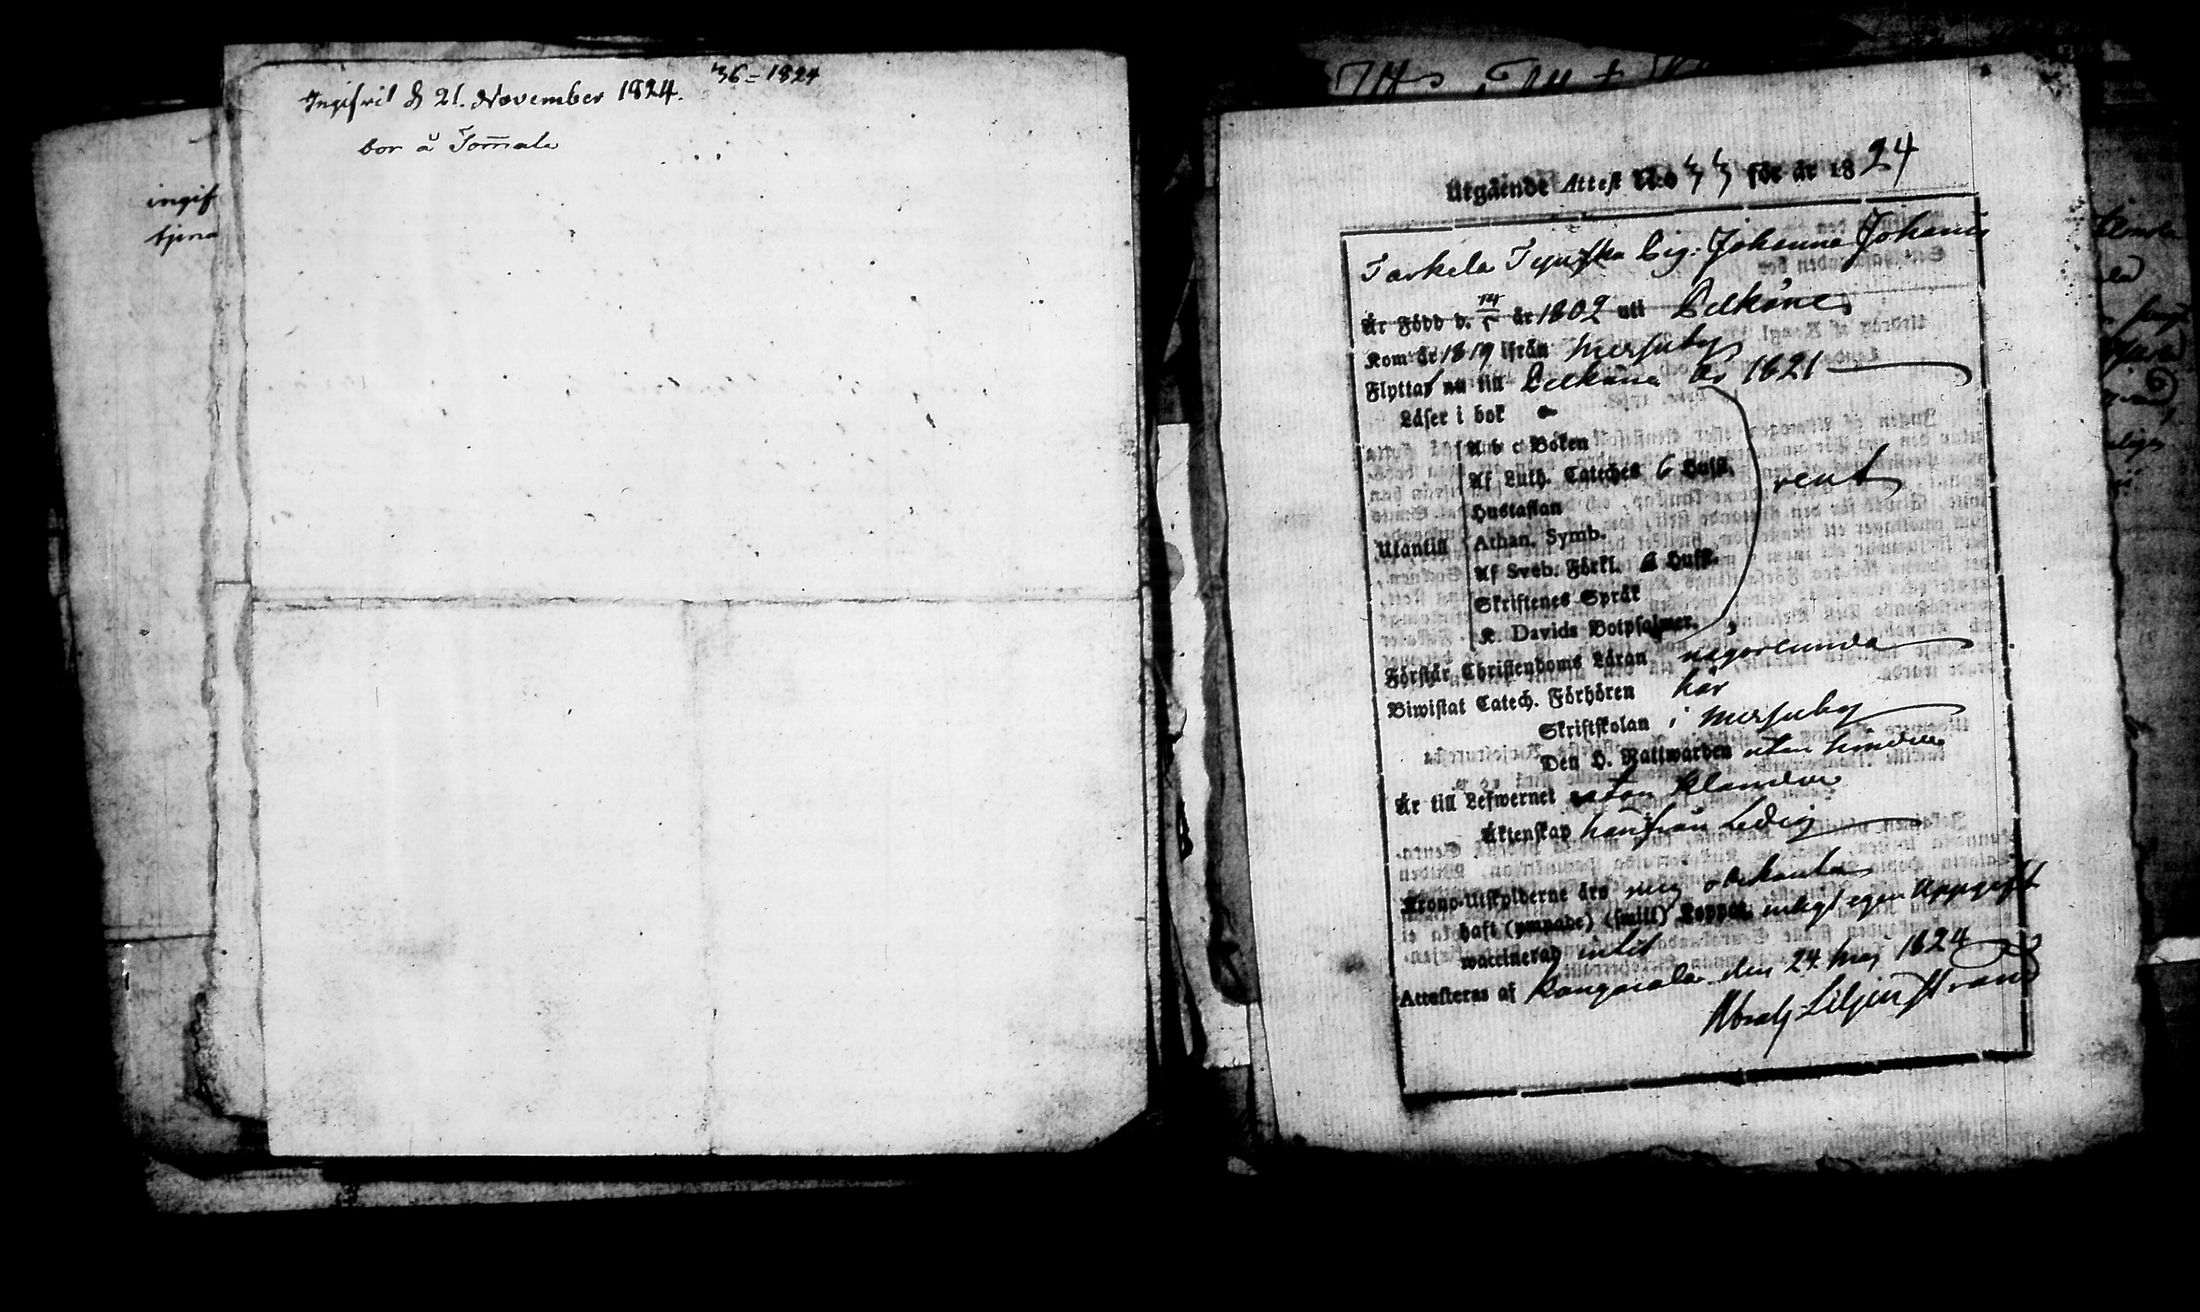 36 = 1824
Ingifvit d 21. November 1824.
bor å Tomala
ingif
tjena
Utgående Attest N:o 33 för år 1824
Tarkela Pig: Johanna Johans
Är Född d. 14/5 år 1802 uti Selkäne
Kom år 1819 ifrån Messuby
Flyttat nu till Selkäne år 1821
Läser i bok
A b c Boken
Af Luth. Cateches 6 Hufst.
Hustaflan
Utantill
Athan. Symb.
Af Sveb. Förkl. 6 Hufst.
Skriftenes Språk
K. Davids Botpsalmer.
rent
Förstår Christendoms Läran någorlunda
Biwistat Catech. Förhören här
Skriftskolan i Messuby
Den H. Nattwarden utan hinder
Är till Lefwernet utan klander
Äktenskap härifrån Ledig
Krono-Utskylderne äro mig obekanta
haft (ympade) (smitt) Koppor enligt egen Uppgift
waccinerad intet
Attesteras af Kangasala den 24 Maj 1824
Abrah Liljenstrand